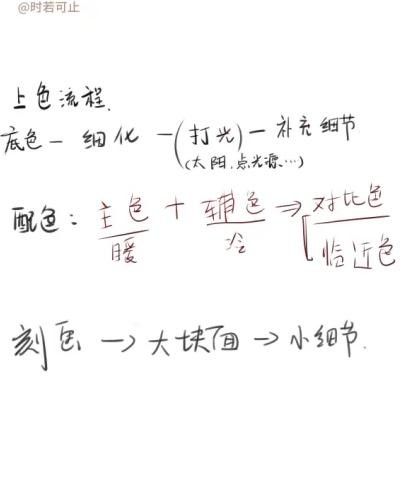 @时若可止
上色流程.
底色—细化—(打光)—补充细节
(太阳.点光源…)
配色：主色+辅色⇒对比色
暖 冷 临近色
刻画→大块面→小细节.